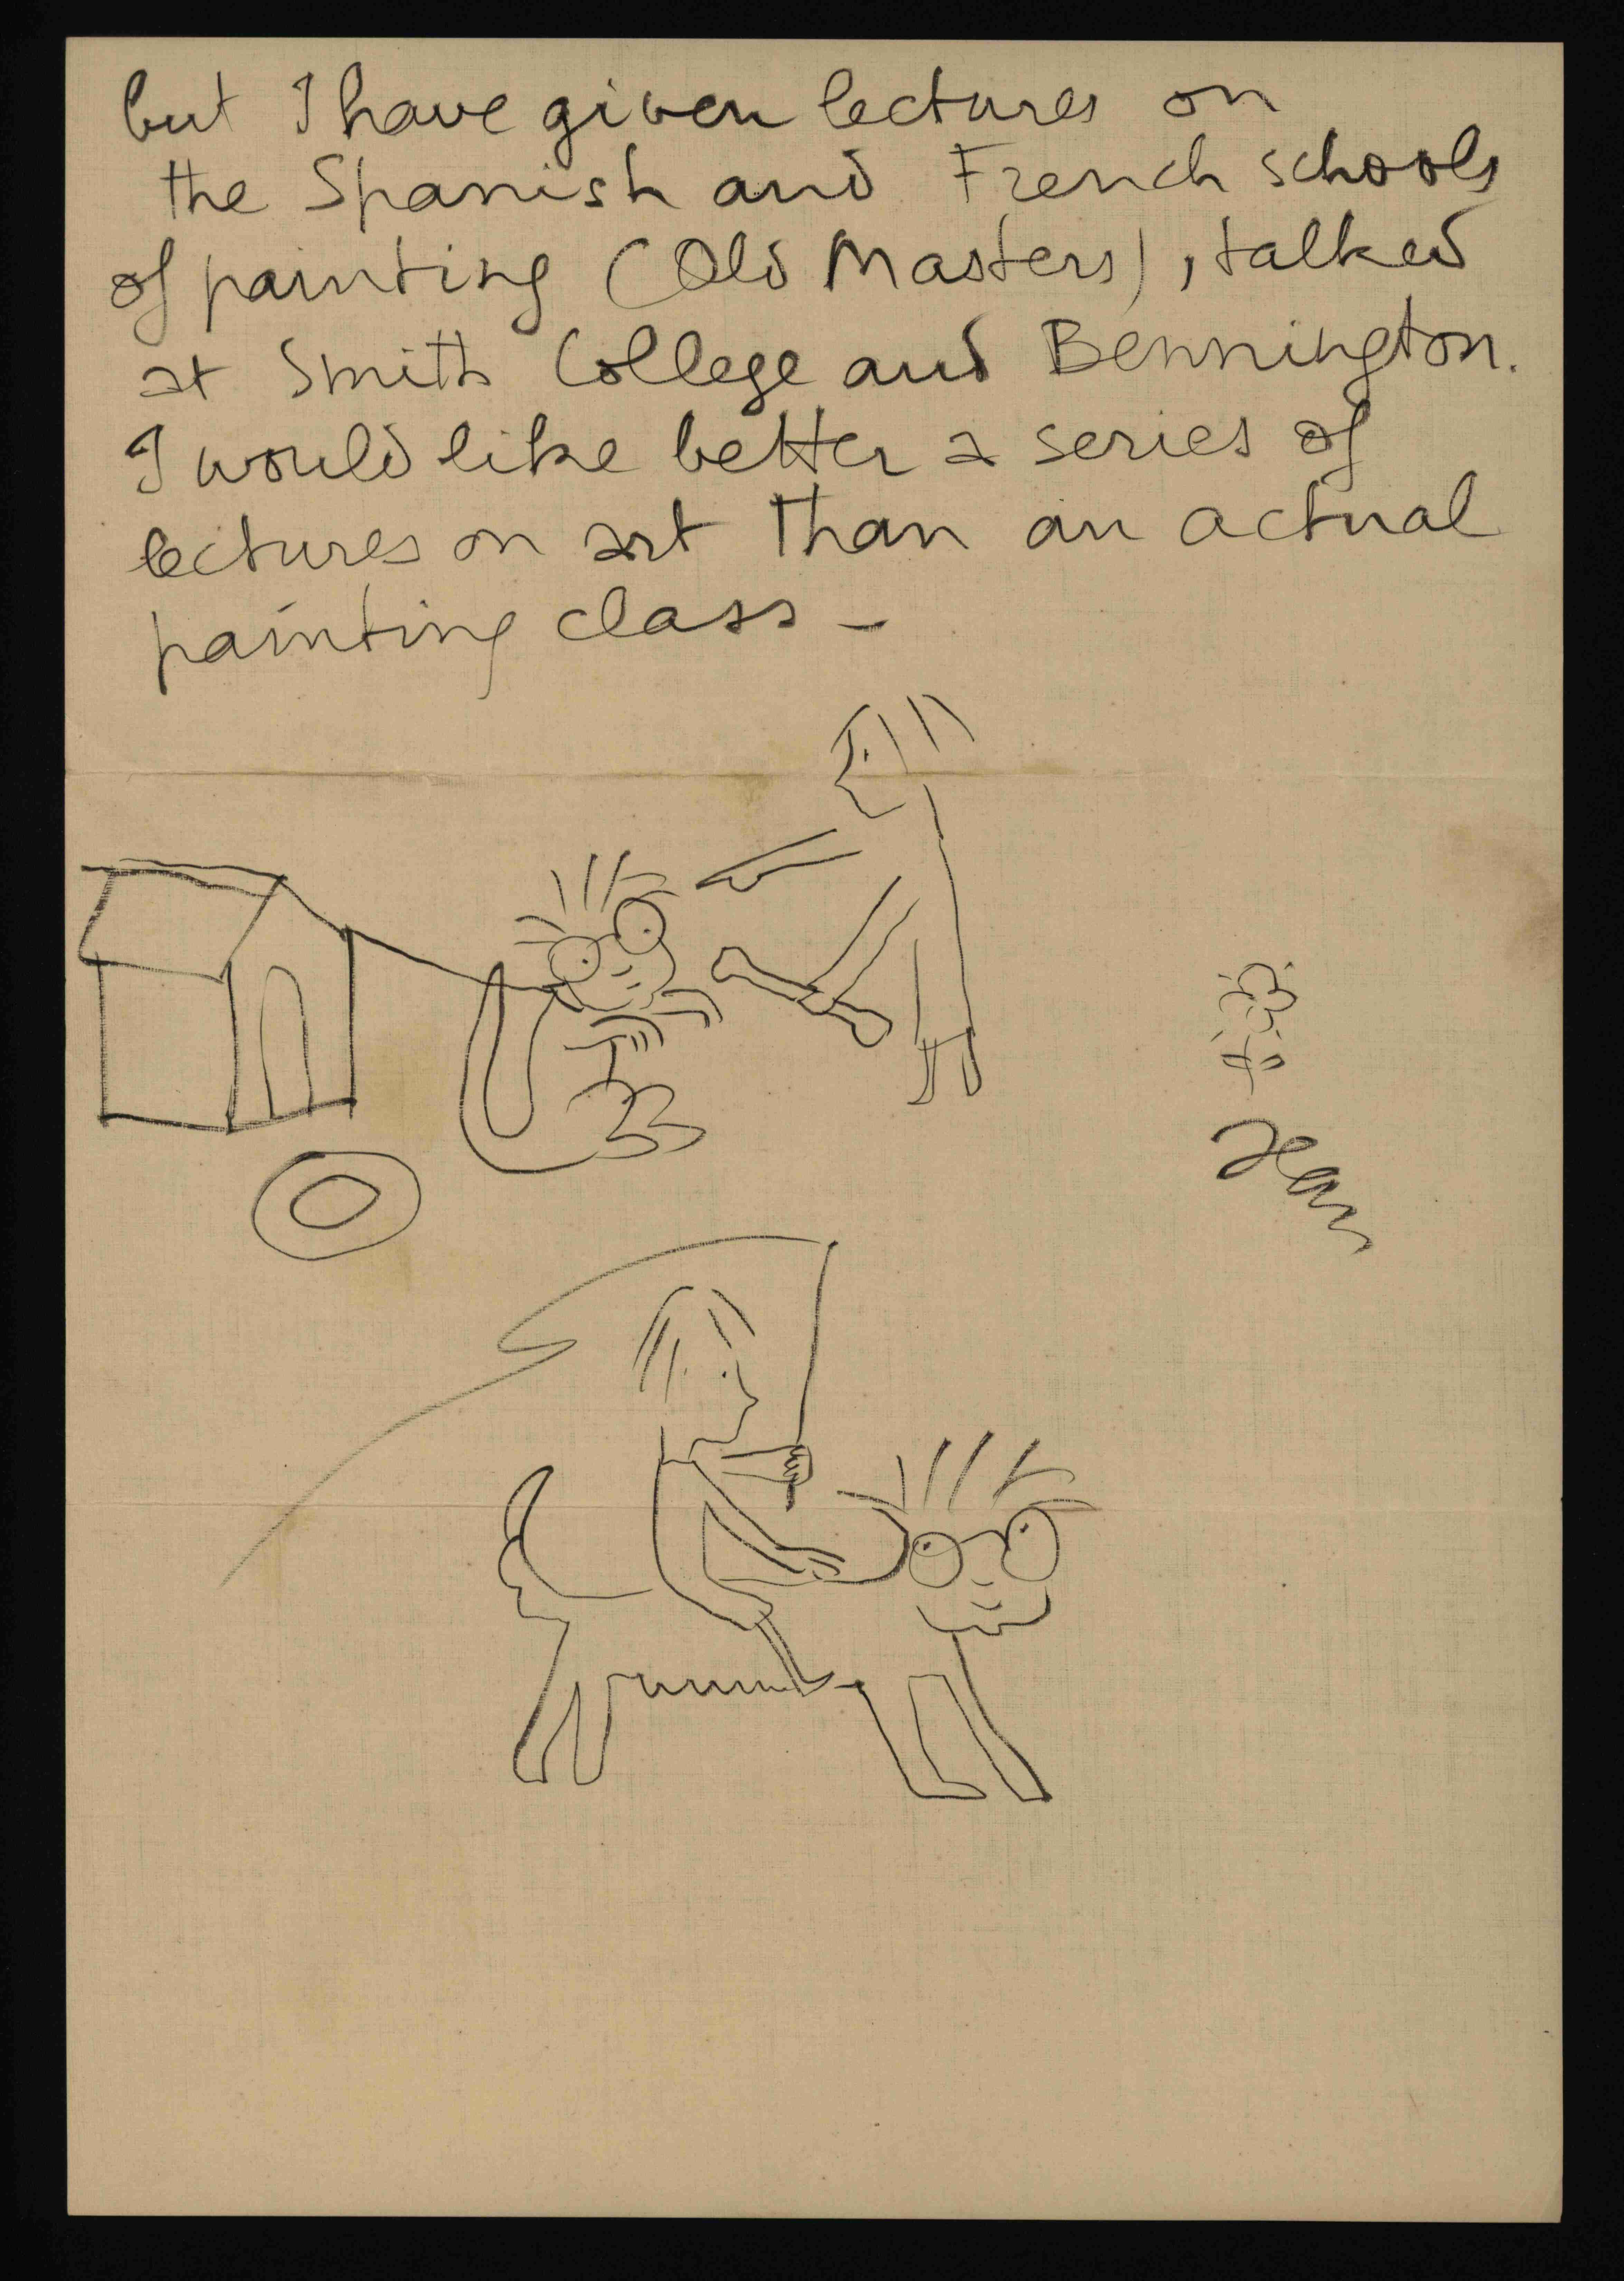 but I have given lectures on
the Spanish and French schools
of painting (Old Masters), talked
at Smith College and Bennington.
I would like better a series of
lectures on art than an actual
painting class –
Jean